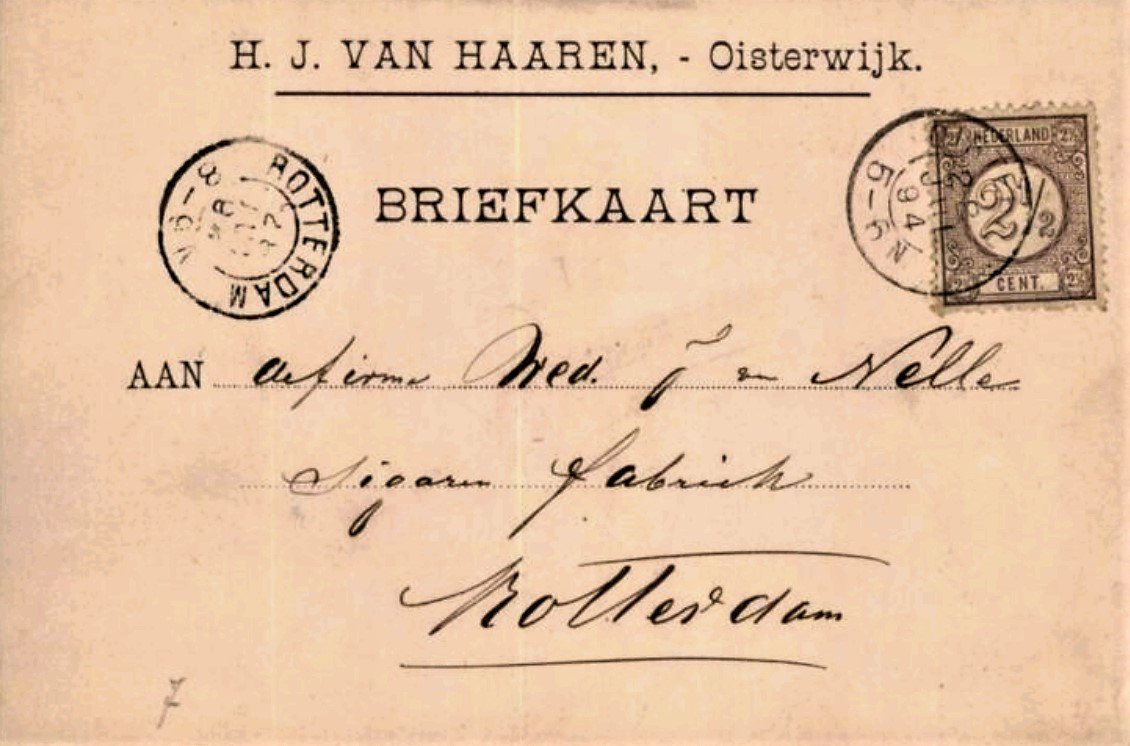 H. J. VAN HAAREN, - Oisterwijk.
BRIEFKAART
ROTTERDAM
8
N 6-8
NEDERLAND
2½
CENT.
94
5-6 N
AAN de firma Wed. J van Nelle
Sigaren fabriek
Rotterdam
7